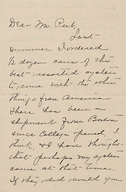 Dear Mr. Peck,
Last
summer I ordered
½ dozen cans of the
best assorted oysters
to come with the other
things from Camerons
There has been no
shipment from Boston
since College opened, I
think, & I have thought
that perhaps my oysters
came at that time.
If they did would you